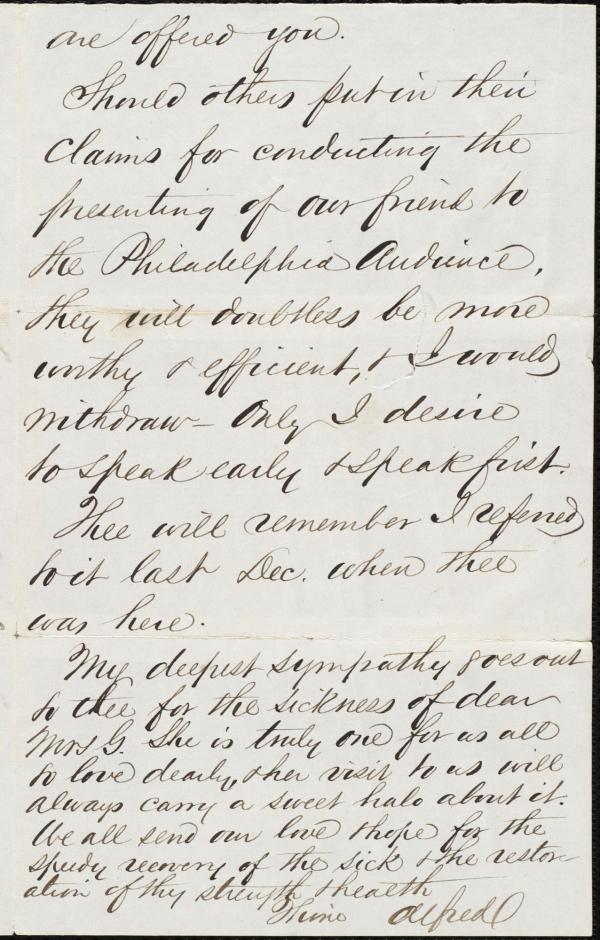 are offered you.
Should others put in their
claims for conducting the
presenting of our friend to
the Philadelphia Audience,
they will doubtless be more
worthy & efficient, & I would
withdraw - Only I desire
to speak early & speak first.
Thee will remember I referred
to it last Dec. when thee
was here.
My deepest sympathy goes out
to thee for the sickness of dear
Mrs G. She is truly one for us all
to love dearly, & her visit to us will
always carry a sweet halo about it.
We all send our love & hope for the
speedy recovery of the sick & the restor-
ation of thy strength & health
Thine Alfred